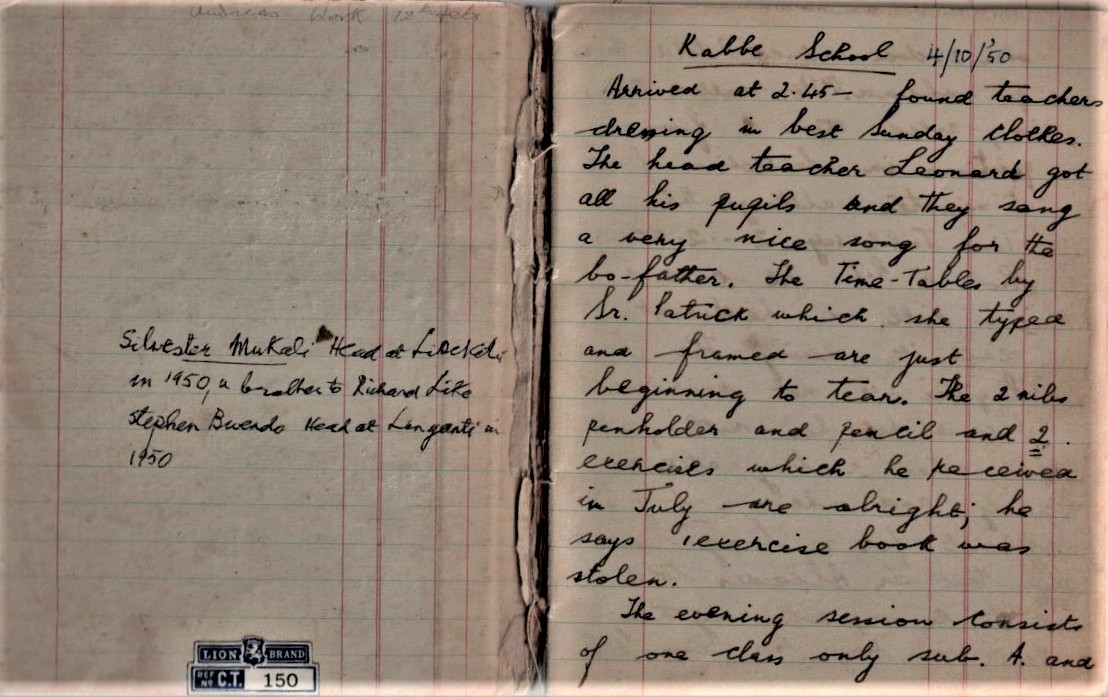 Work 12
Silvester Mukali Head at
in 1950, a brother to Richard Liko
Stephen Buendo Head at Linyanti in
1950
LION BRAND
REF No C.T. 150
Kabbe School 4/10/'50
Arrived at 2.45 — found teachers
dressing in best Sunday clothes.
The head teacher Leonard got
all his pupils and they sang
a very nice song for the
bo-father. The Time-Tables by
Sr. Patrick which she typed
and framed are just
beginning to tear. The 2 nibs
penholder and pencil and 2
exercises which he received
in July are alright; he
says 1 exercise book was
stolen.
The evening session consists
of one class only sub. A. and